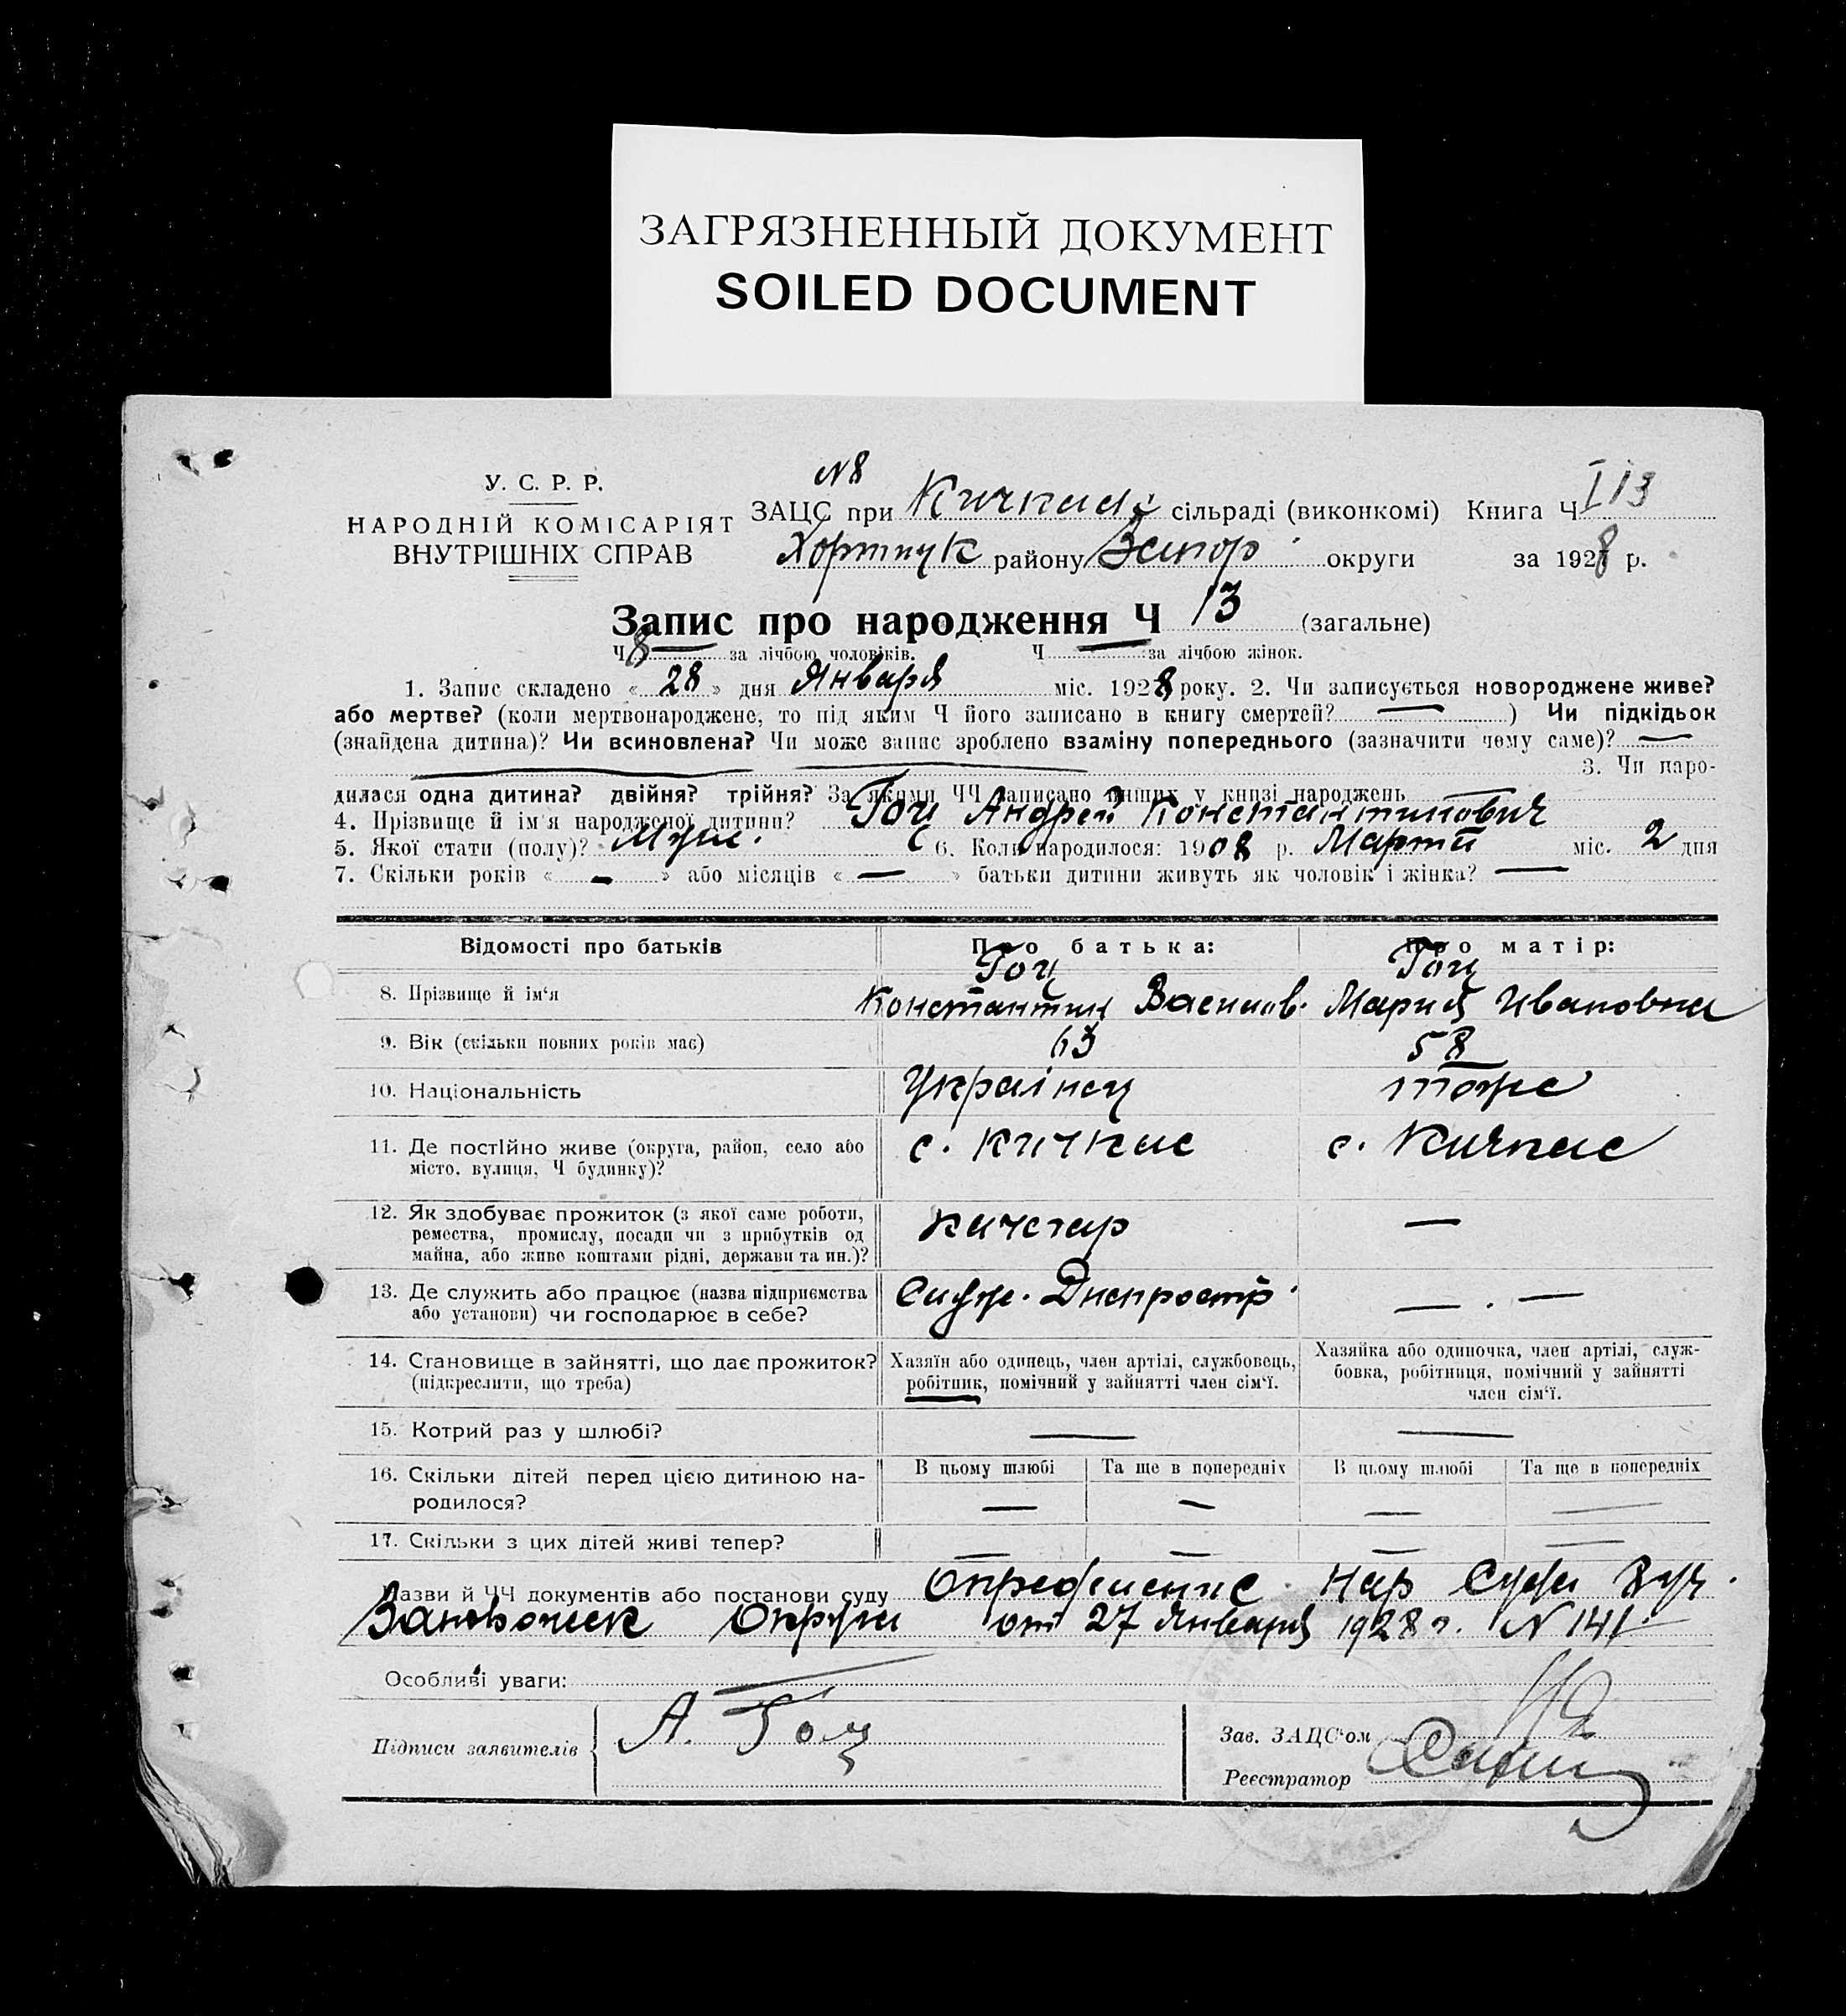 ЗАГРЯЗНЕННЫЙ ДОКУМЕНТ
SOILED DOCUMENT
У. С. Р. Р.
НАРОДНІЙ КОМІСАРІЯТ
ВНУТРІШНІХ СПРАВ
N 8
ЗАЦС при Кичкас сільраді (виконкомі) Книга Ч I/13
Хортицк району Запор. округи за 1928 р.
Запис про народження Ч 13 (загальне)
Ч 8 за лічбою чоловіків. Ч — за лічбою жінок.
1. Запис складено « 28 » дня Января міс. 1928 року. 2. Чи записується новороджене живе?
або мертве? (коли мертвонароджене, то під яким Ч його записано в книгу смертей? — ) Чи підкідьок
(знайдена дитина)? Чи всиновлена? Чи може запис зроблено взаміну попереднього (зазначити чому саме)? —
3. Чи наро-
дилася одна дитина? двійня? трійня? За якими ЧЧ записано инших у книзі народжень
4. Прізвище й ім'я народженої дитини? Гоц Андрей Константинович
5. Якої стати (полу)? Муж. 6. Коли народилося: 1908 р. Марта міс. 2 дня
7. Скільки років « — » або місяців « — » батьки дитини живуть як чоловік і жінка? —
Відомості про батьків Про батька: Про матір:
8. Прізвище й ім'я Гоц Константин Васильев. Гоц Мария Ивановна
9. Вік (скільки повних років має) 63 58
10. Національність Украінец тоже
11. Де постійно живе (округа, район, село або місто, вулиця, Ч будинку)? с. Кичкас с. Кичкас
12. Як здобуває прожиток (з якої саме роботи, ремества, промислу, посади чи з прибутків од майна, або живе коштами рідні, держави та ин.)? Качегар —
13. Де служить або працює (назва підприємства або установи) чи господарює в себе? Служ. Днепростр. — . —
14. Становище в зайнятті, що дає прожиток? (підкреслити, що треба) Хазяїн або одинець, член артілі, службовець, робітник, помічний у зайнятті член сім'ї. Хазяйка або одиночка, член артілі, служ-бовка, робітниця, помічний у зайнятті член сім'ї.
15. Котрий раз у шлюбі? — —
16. Скільки дітей перед цією дитиною на-родилося? В цьому шлюбі — Та ще в попередніх — В цьому шлюбі — Та ще в попередніх —
17. Скільки з цих дітей живі тепер? — — — —
Назви й ЧЧ документів або постанови суду Определение Нар Суда
Округи от 27 Января 1928 г. N 141
Особливі уваги: —
Підписи заявителів А. Гоц
Зав. ЗАЦС'ом
Реєстратор